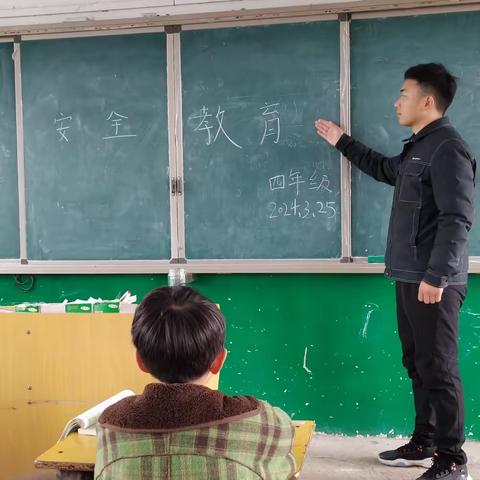 安全教育
四年级
2024.3.25